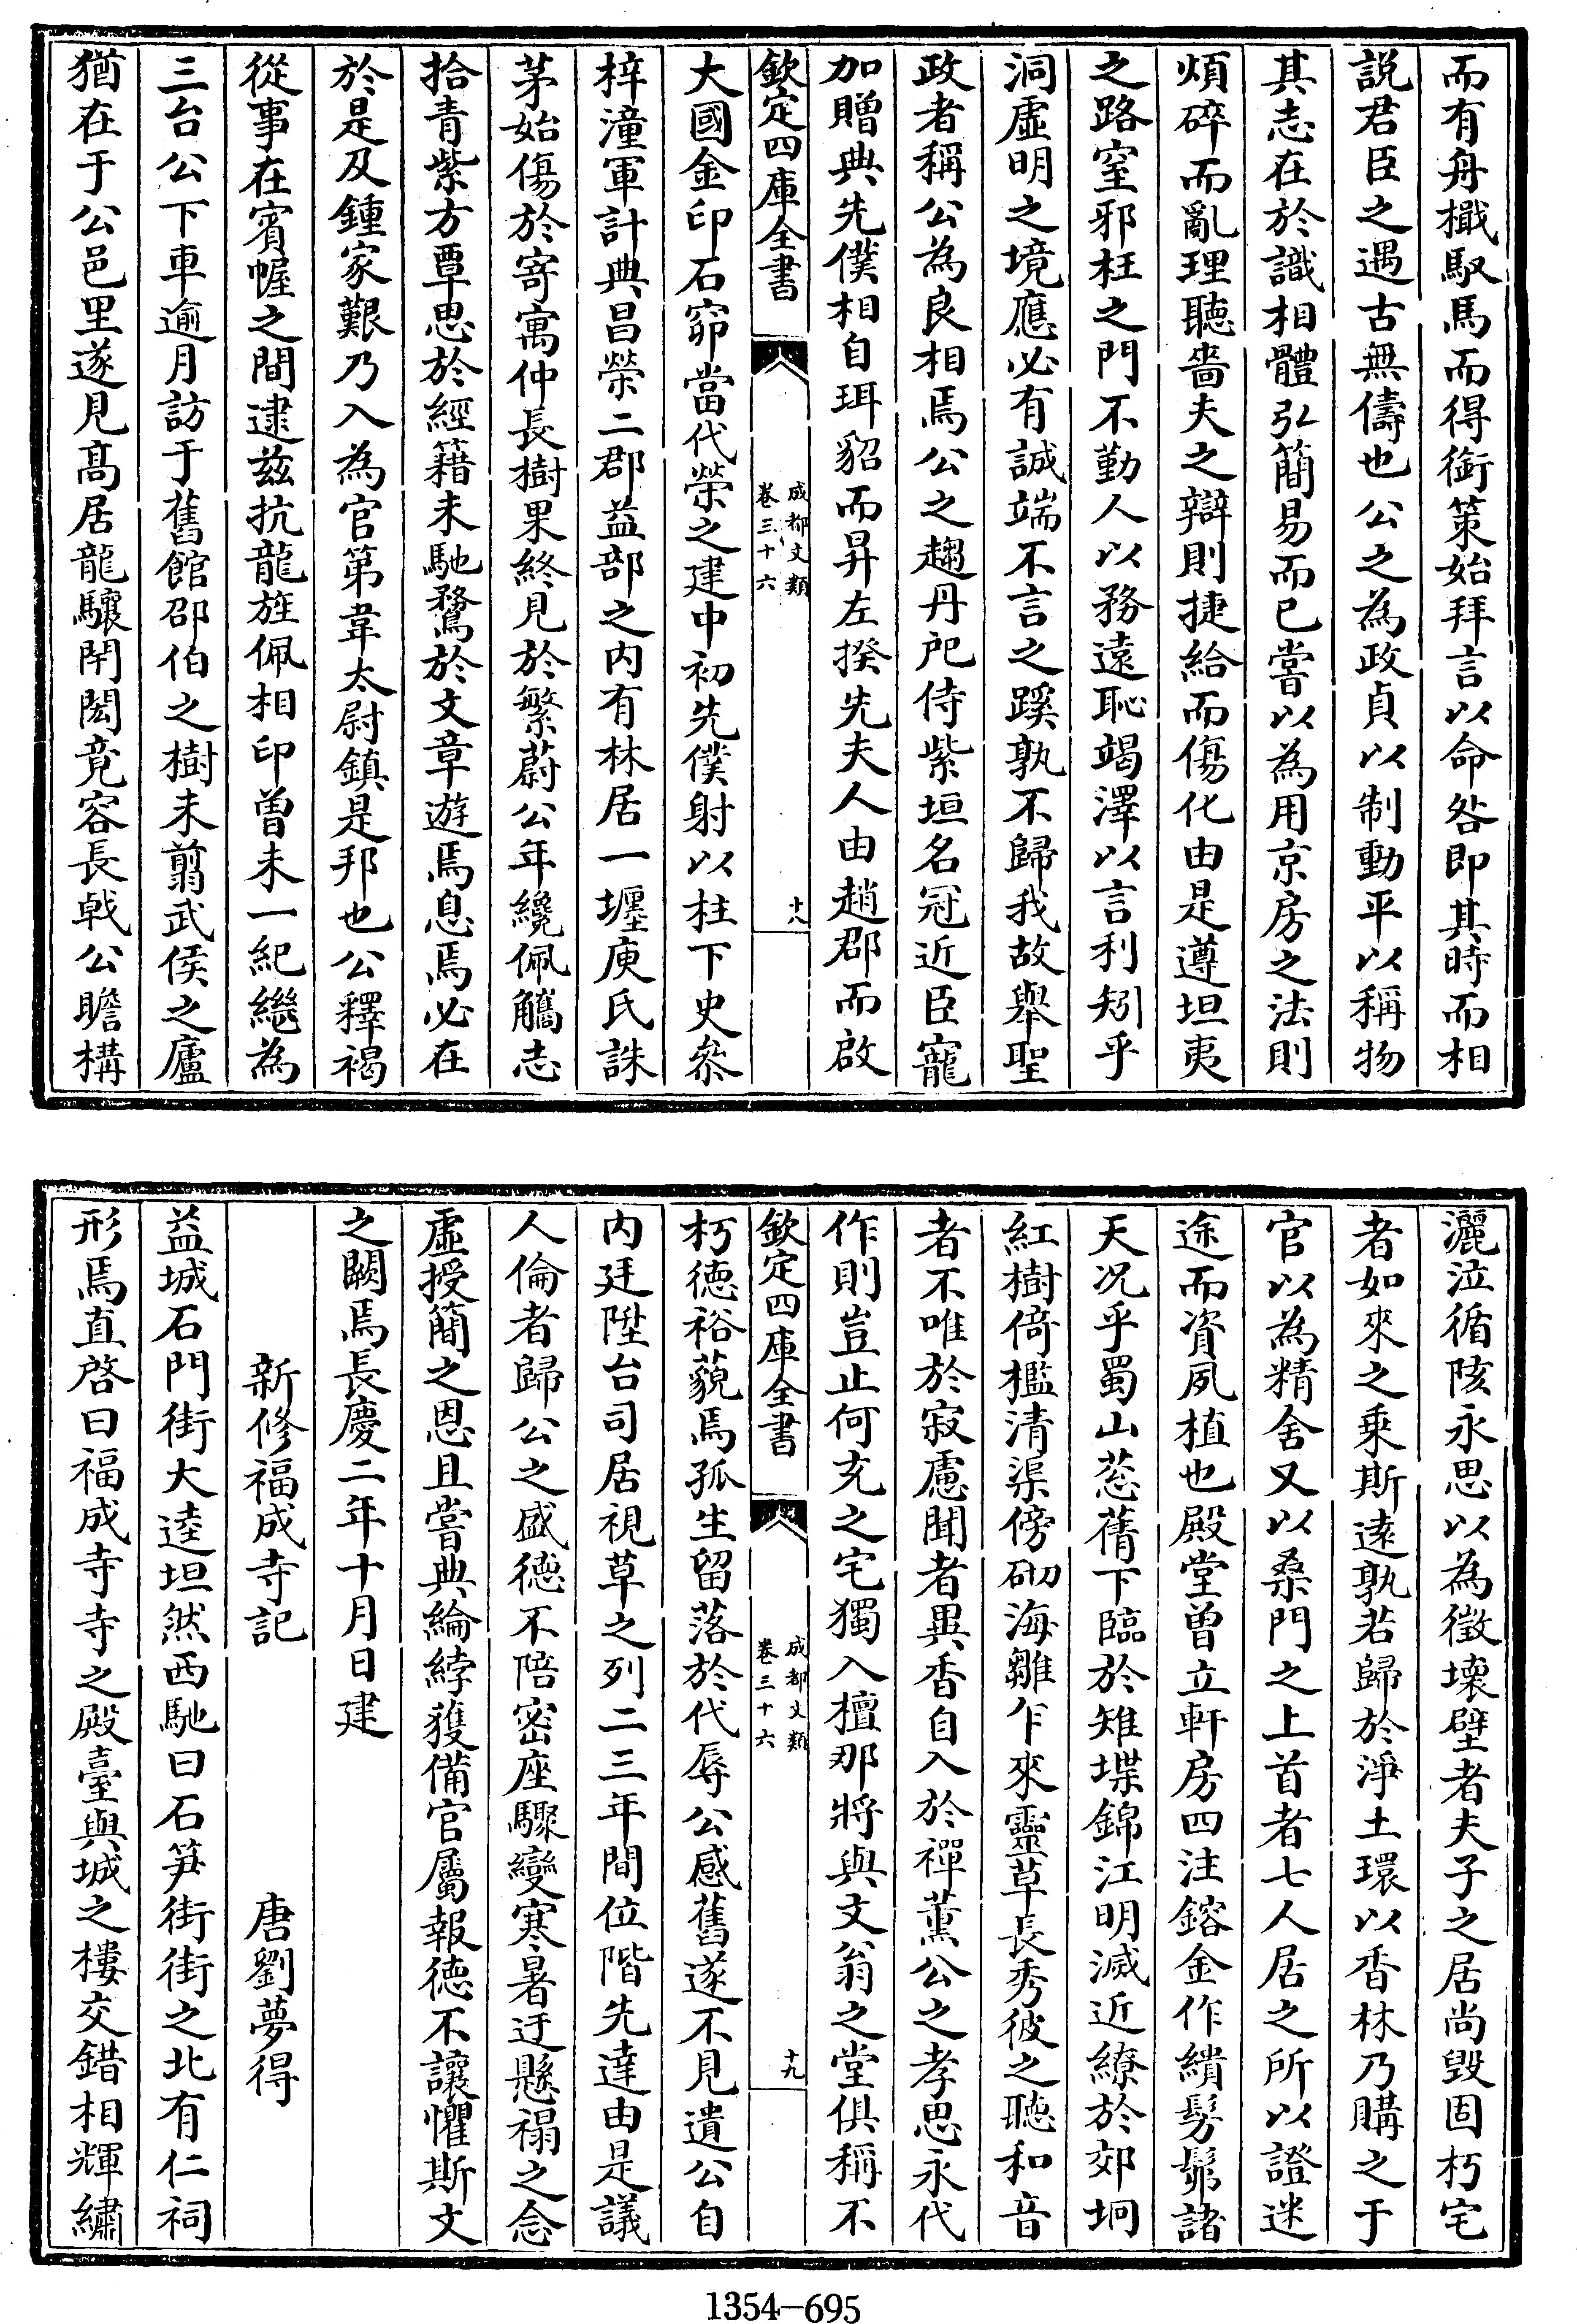 而有舟檝馭馬而得銜策始拜言以命咎即其時而相
説君臣之遇古無儔也公之為政貞以制動平以稱物
其志在於識相體弘簡易而已嘗以為用京房之法則
煩碎而亂理聽嗇夫之辯則捷給而傷化由是遵坦夷
之路窒邪枉之門不勤人以務遠恥竭澤以言利矧乎
洞虛明之境應必有誠端不言之蹊孰不歸我故舉聖
政者稱公為良相焉公之趨丹戺侍紫垣名冠近臣寵
加贈典先僕相自珥貂而昇左揆先夫人由趙郡而啟
欽定四庫全書
成都文類
卷三十六
十八
大國金印石窌當代榮之建中初先僕射以柱下史叅
梓潼軍計典昌榮二郡益部之内有林居一㕓庾氏誅
茅始傷於寄寓仲長樹果終見於繁蔚公年纔佩觿志
拾青紫方覃思於經籍未馳騖於文章遊焉息焉必在
於是及鍾家艱乃入為官第韋太尉鎮是邦也公釋褐
從事在賓幄之間逮兹抗龍旌佩相印曾未一紀繼為
三台公下車逾月訪于舊館邵伯之樹未翦武侯之廬
猶在于公邑里遂見髙居龍驤閈閎竟容長㦸公瞻構
灑泣循陔永思以為徵壞壁者夫子之居尚毁固朽宅
者如來之乘斯遠孰若歸於淨土環以香林乃購之于
官以為精舍又以桑門之上首者七人居之所以證迷
途而資夙植也殿堂曾立軒房四注鎔金作繢髣髴諸
天况乎蜀山葱蒨下臨於雉堞錦江明滅近繚於郊坰
紅樹倚檻清渠傍砌海雛乍來靈草長秀彼之聽和音
者不唯於寂慮聞者異香自入於禪薰公之孝思永代
作則豈止何充之宅獨入檀那將與文翁之堂俱稱不
欽定四庫全書
成都文類
卷三十六
十九
朽德裕藐焉孤生留落於代辱公感舊遂不見遺公自
内廷陞台司居視草之列二三年間位階先達由是議
人倫者歸公之盛德不陪密座驟變寒暑迂懸榻之念
虛授簡之恩且嘗典綸綍獲備官屬報德不讓懼斯文
之闕焉長慶二年十月日建
新修福成寺記　唐劉夢得
益城石門街大逵坦然西馳曰石笋街街之北有仁祠
形焉直啓曰福成寺寺之殿臺與城之樓交錯相輝繡
1354—695